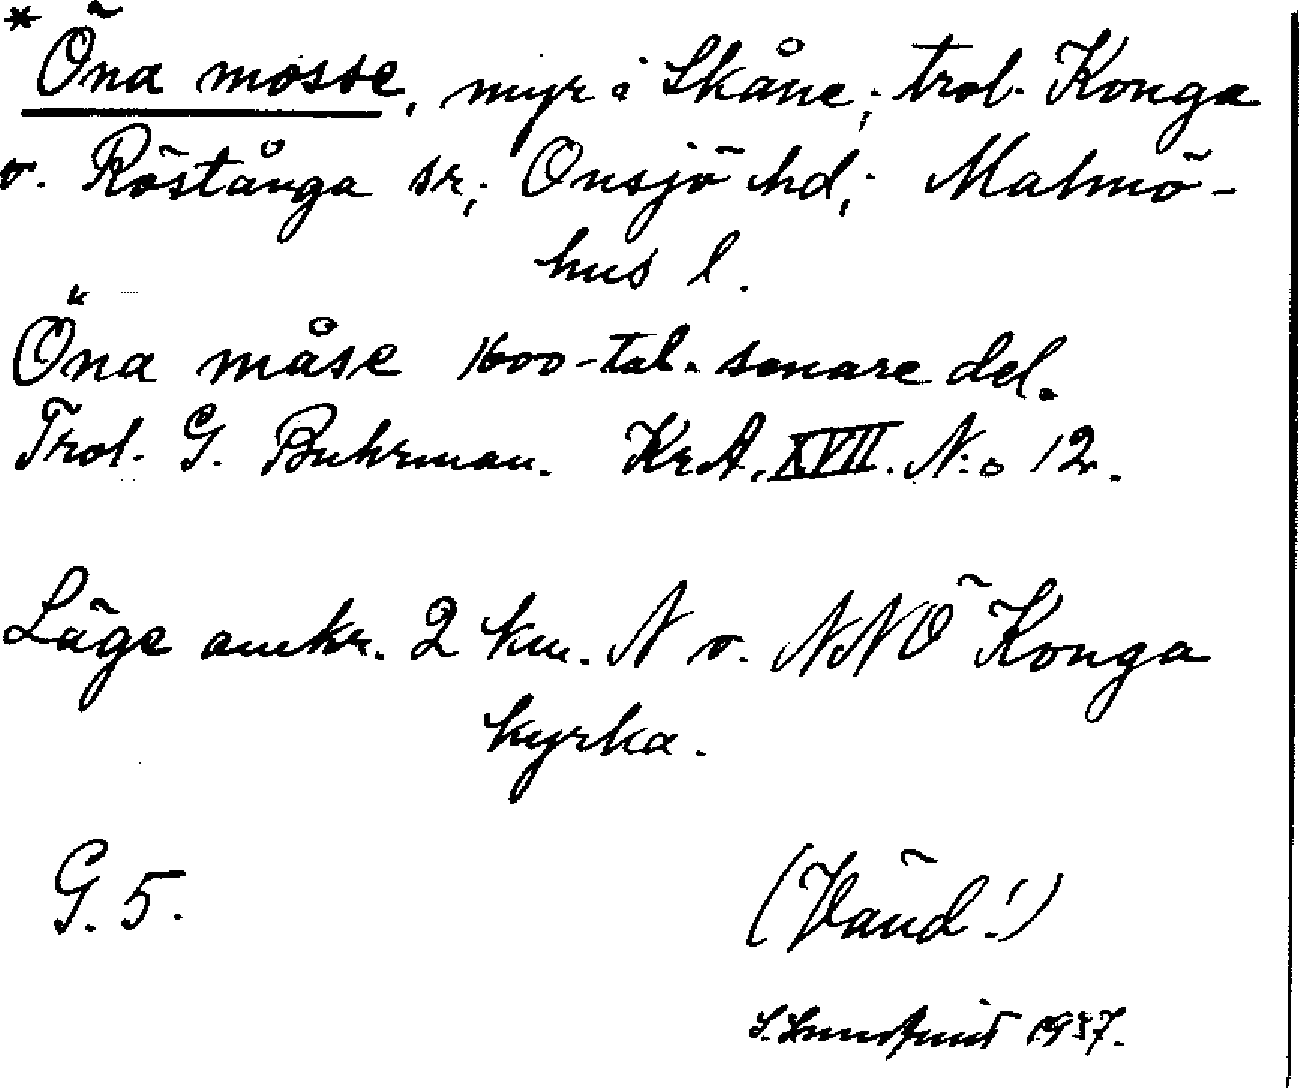 * Öna mosse, myr i Skåne; trol. Konga
o. Röstånga sr; Onsjö hd; Malmö-
hus l.
Öna måse 1600-tal. senare del.
Trol. G. Buhrman. KrA. XVII. N:o 12.
Läge omkr. 2 km. N o. NNÖ Konga
kyrka.
G. 5.
(Vänd!)
S. Lundquist 1937.